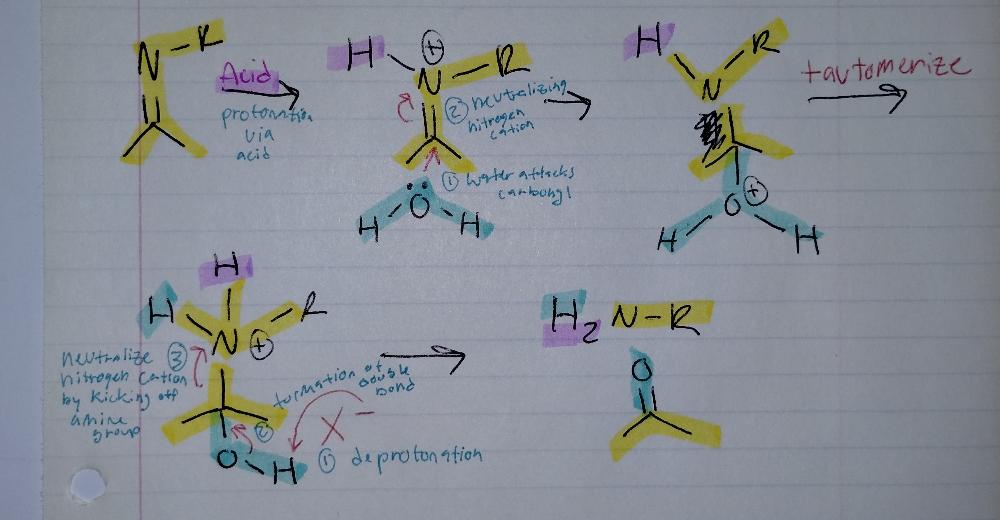 N-R
Acid
protonation
via
acid
H
+
N-R
② neutralizing
nitrogen
cation
① water attacks
carbonyl
H-O-H
H
R
N
O +
H
H
tautomerize
H
H
R
N +
neutralize ③
nitrogen cation
by kicking off
amine
group
formation of
double
bond
②
X-
O-H
① deprotonation
H2N-R
O